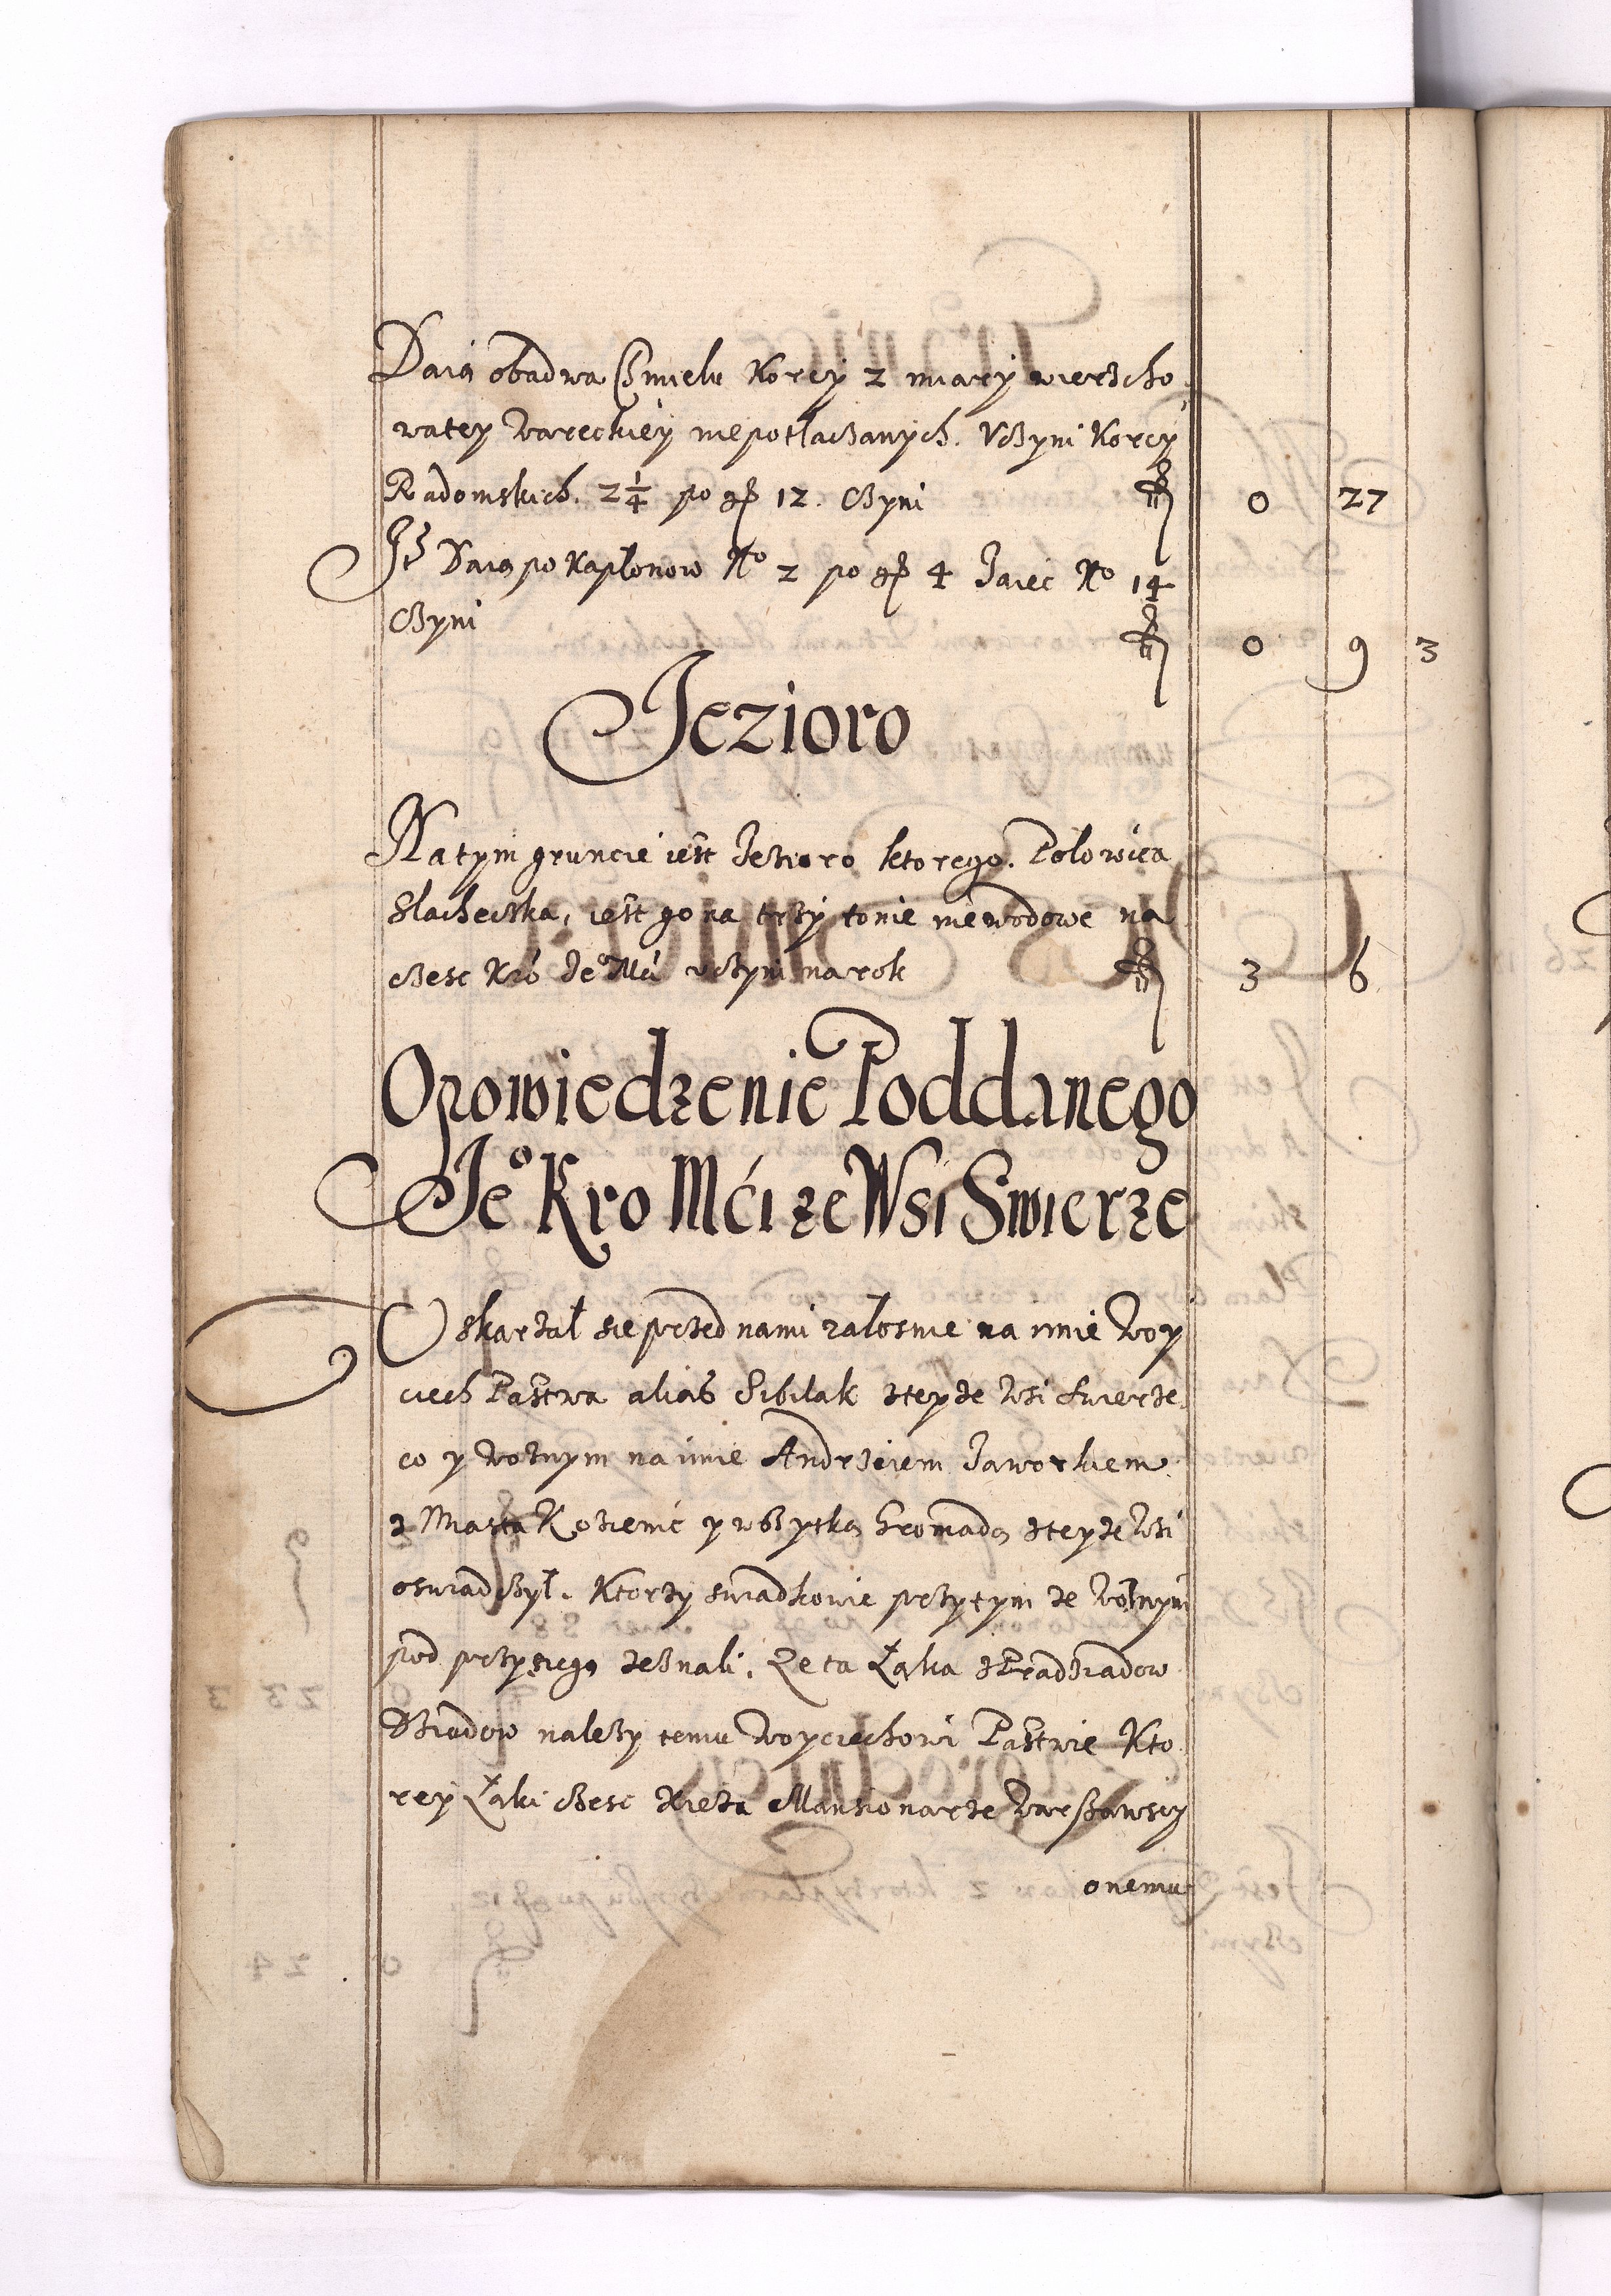 Daią obadwa Chmielu Korcy 2 miary wierzcho
watey Wareckiey niepotłaczanych. Vczyni Korcy
Radomskich. 2¼ po gr 12. Czyni fl 0 27
It Daią po Kapłonow No 2 po gr 4 Jaiec No 14
Czyni fl 0 9 3
Jezioro
Na tym gruncie iest Jezioro ktorego. Polowica
Slachecska, iest go na trzy tonie niewodowe na
czesc Kró Jeo Mći vczyni na rok fl 3 6
Opowiedzenie Poddanego
Jeo Kro Mći ze Wsi Swierze
Oskarzał sie przed nami załosnie na imie Woy
ciech Pastwa alias Sibilak zteyze Wsi Swierze,
co y Woznym na imie Andrzeiem Jaworkiem
z Miasta Kozienic y wszytką Gromadą zteyze Wsi
oswiadczył. Ktorzy swiadkowie przytym ze Woznym
pod przysięgą zeznali. Ze ta Łąka z Pradziadow
Dziadow nalezy temu Woyciechowi Pastwie Kto
rey Łąki czesc Xięza Mansionarze Warszawscy
onemu